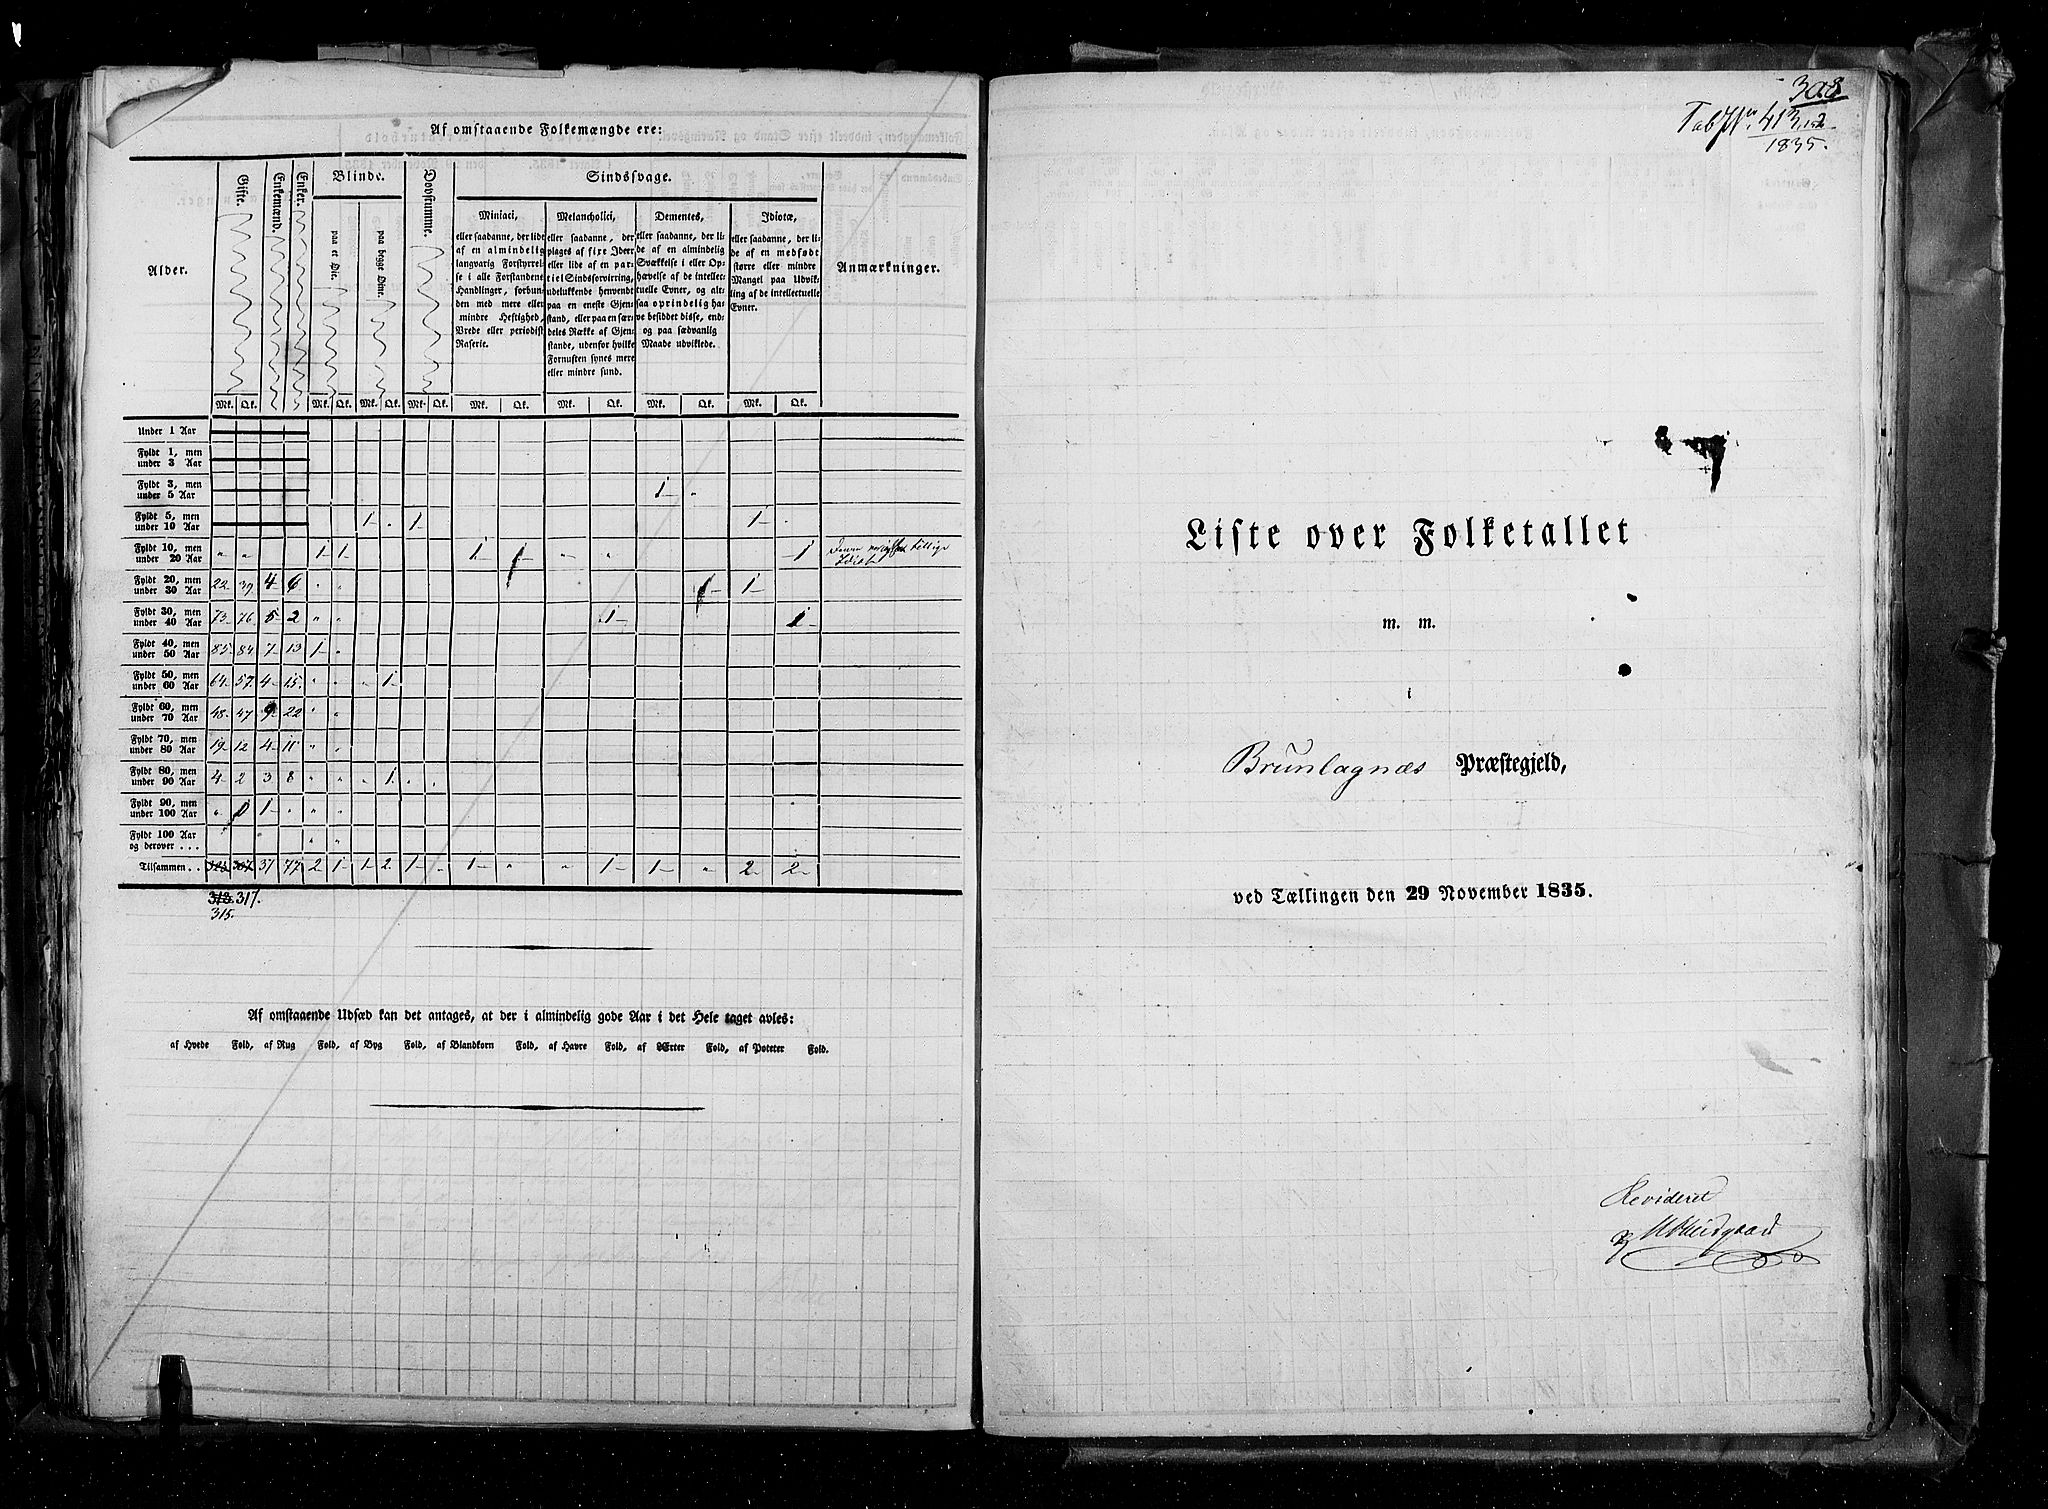 Af omstaaende Folkemængde ere:
Alder.
Gifte.
Enkemænd.
Enker.
Blinde.
paa et Øie.
paa begge Øine.
Døvstumme.
Sindssvage.
Miniaci,
eller saadanne, der lide
af en almindelig
langvarig Forstyrrel-
se i alle Forstandens
Handlinger, forbun-
den med mere eller
mindre Heftighed,
Vrede eller periodisk
Raserie.
Melancholici,
eller saadanne, der
plages af fixe Ideer
eller lide af en par-
tiel Sindsforvirring,
udelukkende henvendt
paa en eneste Gjen-
stand, eller paa en sær-
deles Række af Gjen-
stande, udenfor hvilke
Fornuften synes mere
eller mindre sund.
Dementes,
eller saadanne, der li-
de af en almindelig
Svækkelse i eller Op-
hævelse af de intellec-
tuelle Evner, og alt-
saa oprindelig ha-
ve besiddet disse, end-
og paa sædvanlig
Maade udviklede.
Idiotæ,
eller saadanne, der li-
de af en medfødt
større eller mindre
Mangel paa Udvik-
ling af de intellectuelle
Evner.
Anmærkninger.
Mk. Qk. Mk. Qk. Mk. Qk. Mk. Qk. Mk. Qk. Mk. Qk. Mk. Qk. Mk. Qk.
Under 1 Aar
Fyldt 1, men
under 3 Aar
Fyldt 3, men
under 5 Aar 1 "
Fyldt 5, men
under 10 Aar 1 " 1 1 "
Fyldt 10, men
under 20 Aar " " 1 1 1 1 " " 1 Denne tillige
Fyldt 20, men
under 30 Aar 22 39 4 6 " " 1 1
Fyldt 30, men
under 40 Aar 73 76 5 2 " " 1 1
Fyldt 40, men
under 50 Aar 85 84 7 13 1 "
Fyldt 50, men
under 60 Aar 64 57 4 15 " " " 1
Fyldt 60, men
under 70 Aar 48 47 9 22 " "
Fyldt 70, men
under 80 Aar 19 12 4 11 " "
Fyldt 80, men
under 90 Aar 4 2 3 8 " " " 1 " "
Fyldt 90, men
under 100 Aar " 1 " " "
Fyldt 100 Aar
og derover . . . " "
Tilsammen . . 37 77 2 1 1 2 1 " 1 " " 1 1 " 2 2
313 317.
315.
Af omstaaende Udsæd kan det antages, at der i almindelig gode Aar i det Hele taget avles:
af Hvede Fold, af Rug Fold, af Byg Fold, af Blandkorn Fold, af Havre Fold, af Ærter Fold, af Poteter Fold.
308
Tab No. 413,
1835.
Liste over Folketallet
m. m.
i
Brunlagnæs Præstegjeld,
ved Tællingen den 29 November 1835.
Revideret